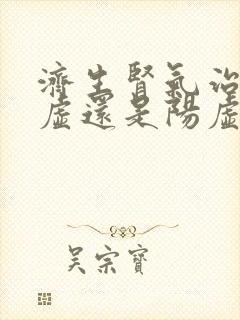 濟生腎氣治
虛還是陽虛
吳宗寶